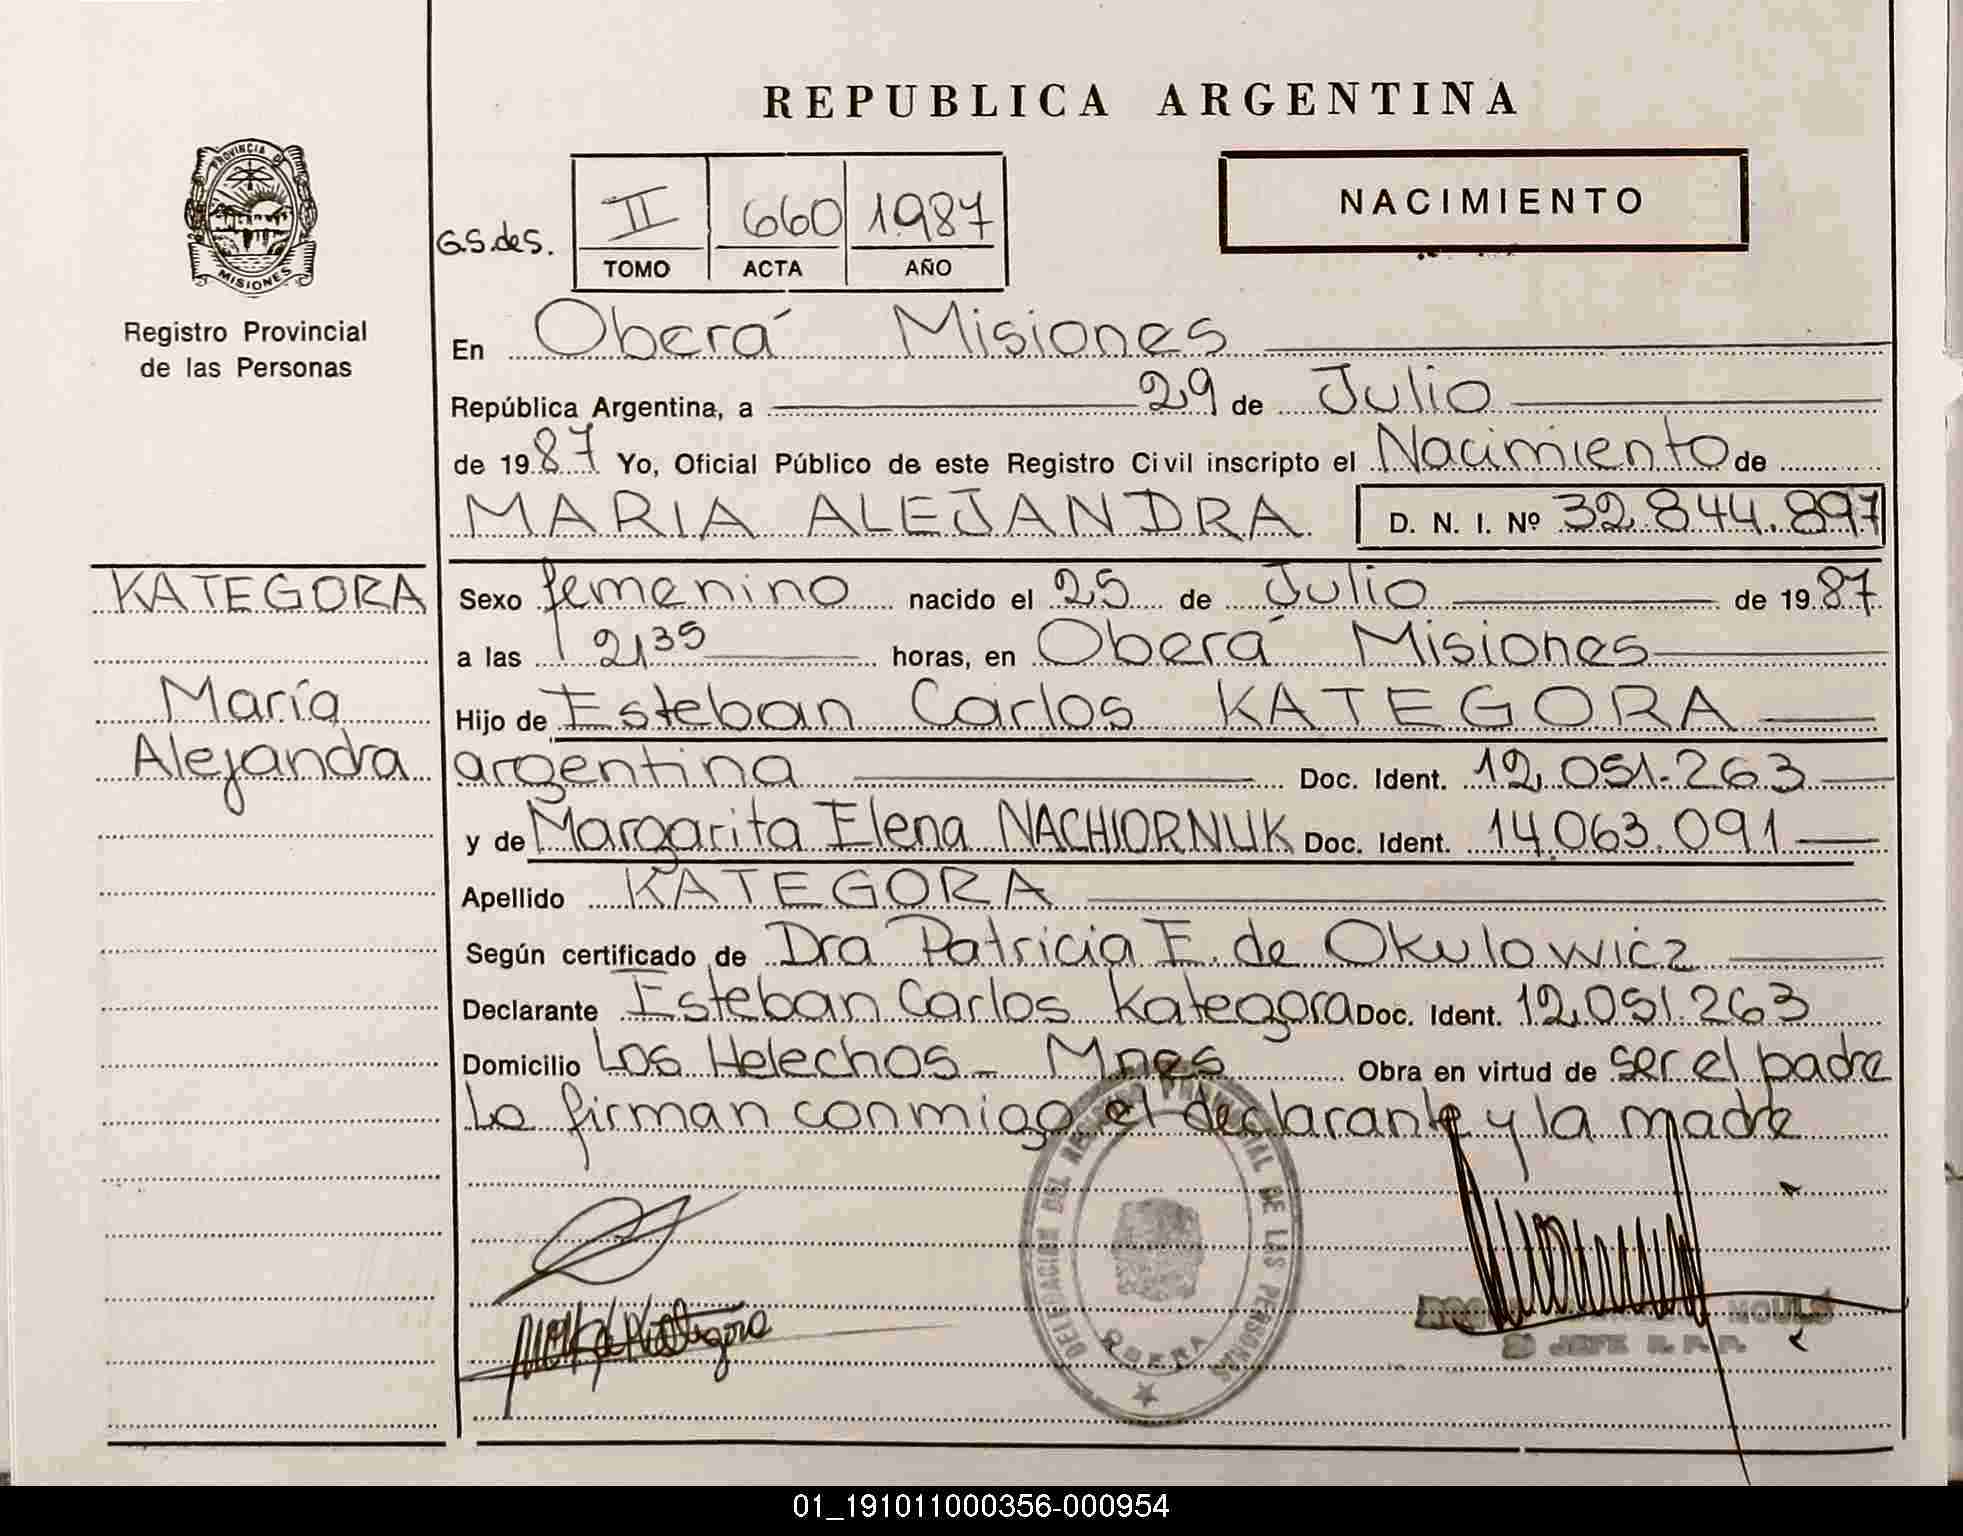 REPUBLICA ARGENTINA
PROVINCIA DE
MISIONES
Registro Provincial
de las Personas
NACIMIENTO
G.S.deS. II 660 1987
TOMO ACTA AÑO
En Oberá Misiones
República Argentina, a 29 de Julio
de 1987 Yo, Oficial Público de este Registro Civil inscripto el Nacimiento de
MARIA ALEJANDRA D. N. I. Nº 32.844.897
KATEGORA
María
Alejandra
Sexo femenino nacido el 25 de Julio de 1987
a las 2135 horas, en Oberá Misiones
Hijo de Esteban Carlos KATEGORA
argentina Doc. Ident. 12.051.263
y de Margarita Elena NACHIORNUK Doc. Ident. 14.063.091
Apellido KATEGORA
Según certificado de Dra Patricia E. de Okulowicz
Declarante Esteban Carlos Kategora Doc. Ident. 12.051.263
Domicilio Los Helechos - Mnes Obra en virtud de ser el padre
Lo firman conmigo el declarante y la madre
DELEGACION DEL REGISTRO PROVINCIAL DE LAS PERSONAS
OBERA
JEFE R. P. P.
01_191011000356-000954